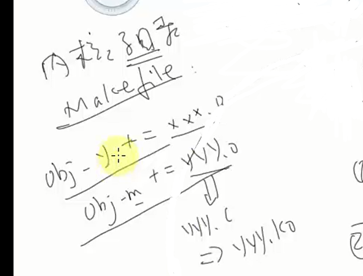 内核子目录
Makefile:
obj-y += xxx.o
obj-m += yyy.o
yyy.c
=> yyy.ko